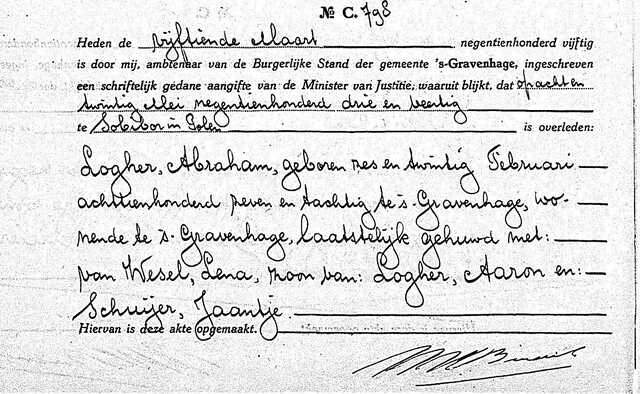 № C. 798
Heden de vijftiende Maart negentienhonderd vijftig
is door mij, ambtenaar van de Burgerlijke Stand der gemeente 's-Gravenhage, ingeschreven
een schriftelijk gedane aangifte van de Minister van Justitie, waaruit blijkt, dat op acht en
twintig Mei negentienhonderd drie en veertig
te Sobibor in Polen is overleden:
Logher, Abraham, geboren zes en twintig Februari
achttienhonderd zeven en tachtig te 's-Gravenhage, wo-
nende te 's-Gravenhage, laatstelijk gehuwd met:
van Wesel, Lena, zoon van: Logher, Aaron en:
Schuijer, Jaantje.
Hiervan is deze akte opgemaakt.